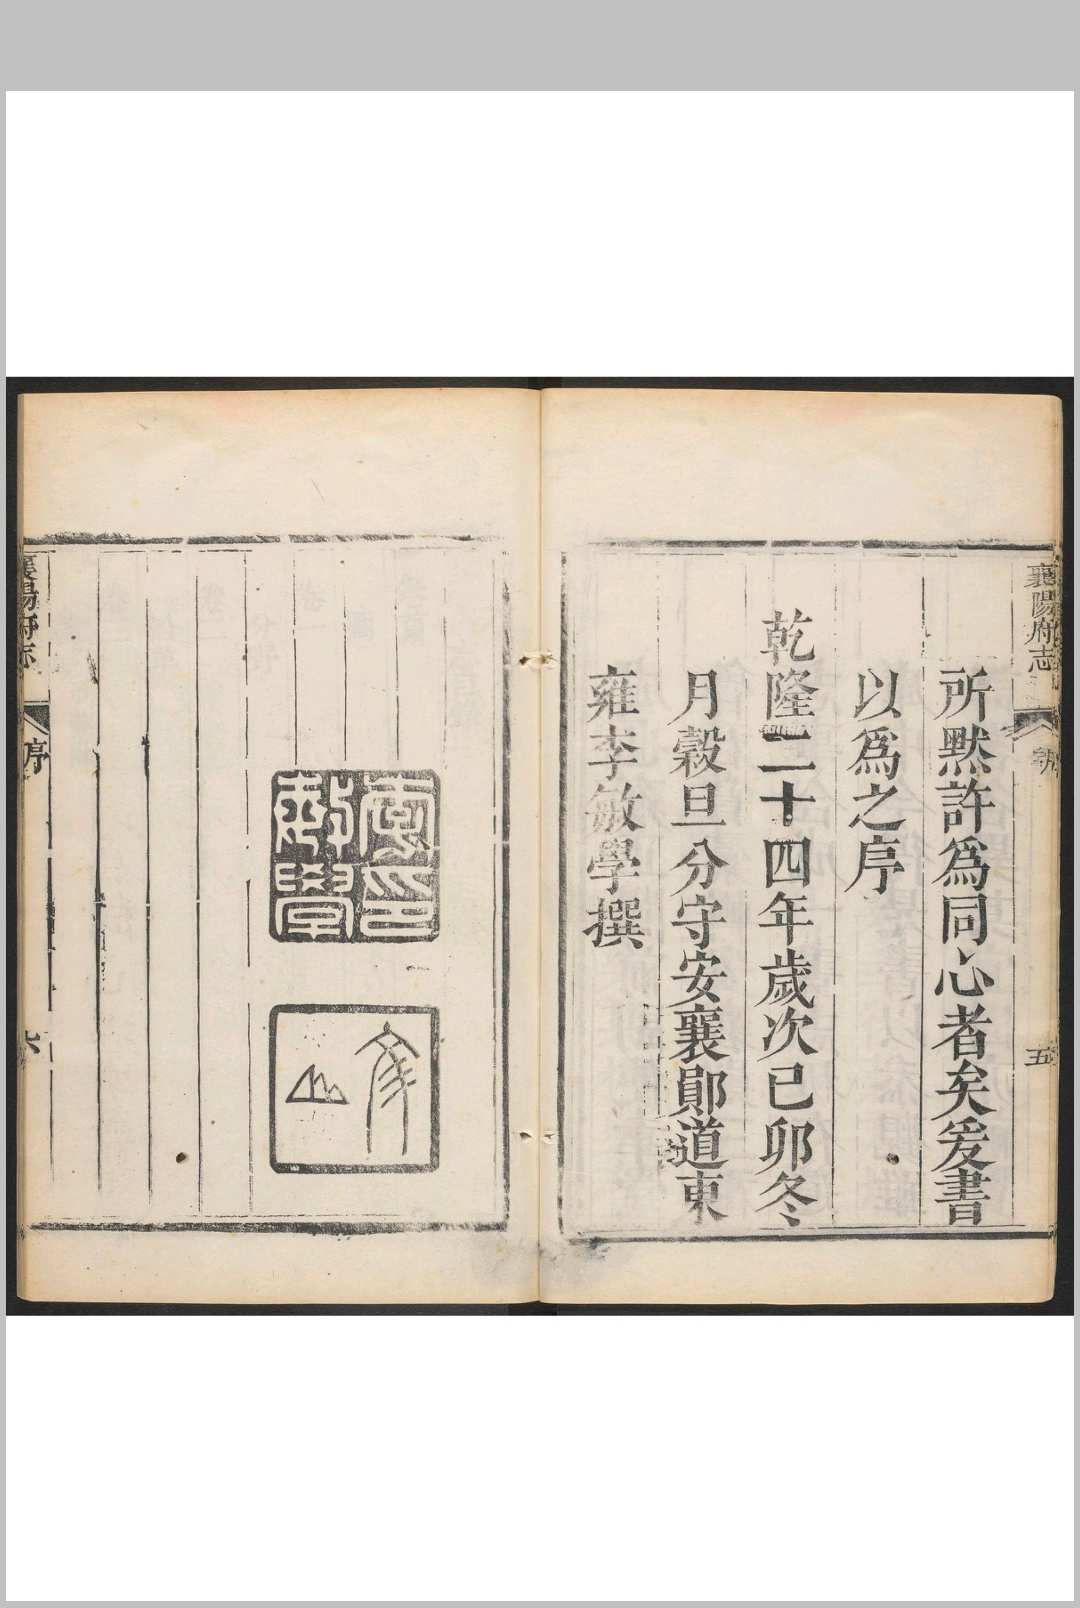 襄陽府志
序
五
所黙許爲同心者矣爰書
以爲之序
乾隆二十四年歲次己卯冬
月穀旦分守安襄鄖道東
雍李敏學撰
敏學
山
襄陽府志
序
六